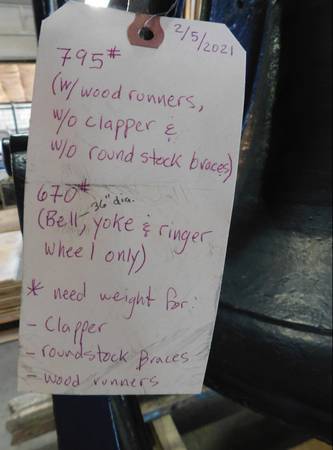 2/5/2021
795#
(w/ wood runners,
w/o clapper &
w/o round stock braces)
670#
36" dia.
(Bell, yoke & ringer
wheel only)
* need weight for:
- Clapper
- roundstock braces
- wood runners